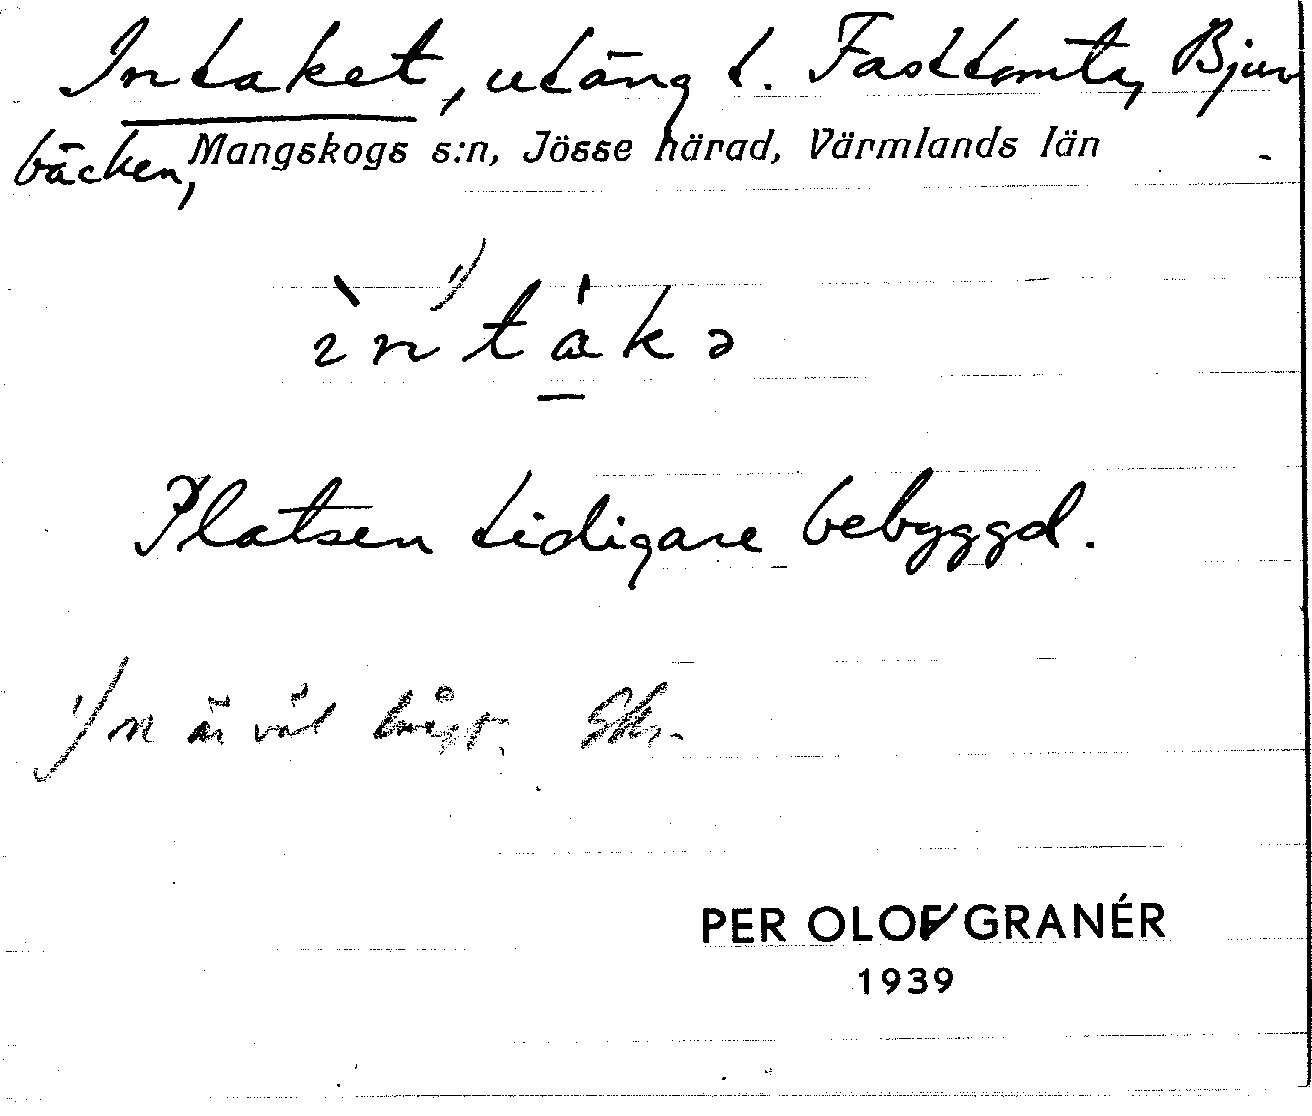 Intaket, utäng t. Fasttomta, Bjur
bäcken, Mangskogs s:n, Jösse härad, Värmlands län
ìn¹⁾tá̱kə
Platsen tidigare bebyggd.
1) n är väl långt.
PER OLOF GRANÉR
1939